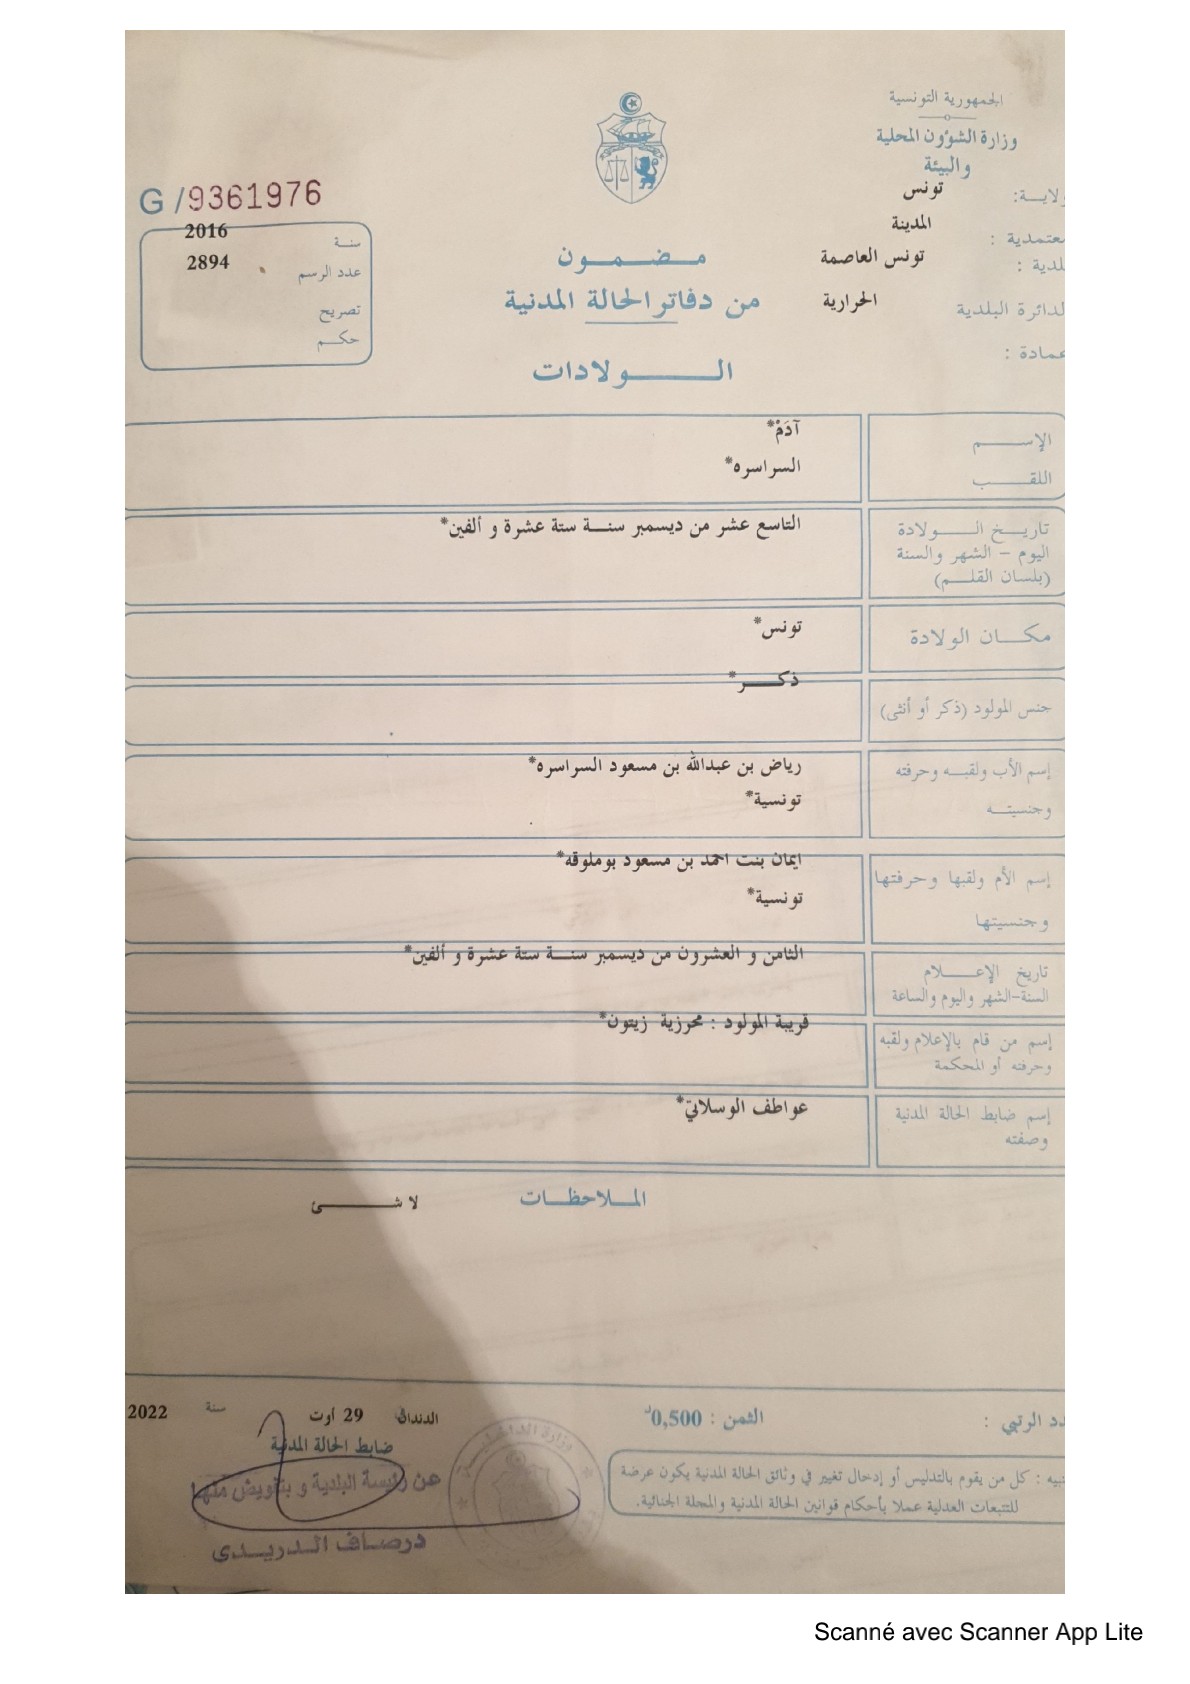 الجمهورية التونسية
وزارة الشؤون المحلية
والبيئة
ولايـــة: تونس
معتمدية : المدينة
بلدية : تونس العاصمة
الدائرة البلدية الحرارية
عمادة :
G /9361976
سنة 2016
عدد الرسم 2894
تصريح
حكم
مـضـمـون
من دفاتر الحالة المدنية
الـولادات
الإسـم آدَمْ*
اللقـب السراسره*
تاريـخ الـولادة التاسع عشر من ديسمبر سنـة ستة عشرة و ألفين*
اليوم – الشهر والسنة
(بلسان القلـم)
مكـان الولادة تونس*
جنس المولود (ذكر أو أنثى) ذكـر*
إسم الأب ولقبـه وحرفته رياض بن عبدالله بن مسعود السراسره*
وجنسيتـه تونسية*
إسم الأم ولقبها وحرفتها ايمان بنت احمد بن مسعود بوملوقه*
وجنسيتها تونسية*
تاريخ الإعـلام الثامن و العشرون من ديسمبر سنـة ستة عشرة و ألفين*
السنة-الشهر واليوم والساعة
إسم من قام بالإعلام ولقبه قريبة المولود : محرزية زيتون*
وحرفته أو المحكمة
إسم ضابط الحالة المدنية عواطف الوسلاتي*
وصفته
الملاحظات لا شـئ
عدد الرتبي : الثمن : 0,500د
الدندان 29 أوت سنة 2022
ضابط الحالة المدنية
عن رئيسة البلدية و بتفويض منها
درصاف الـدريـدي
تنبيه : كل من يقوم بالتدليس أو إدخال تغيير في وثائق الحالة المدنية يكون عرضة
للتتبعات العدلية عملا بأحكام قوانين الحالة المدنية والمجلة الجنائية.
وزارة الداخلية
Scanné avec Scanner App Lite